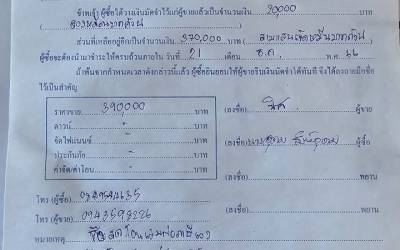 ข้าพเจ้า ผู้ซื้อได้วางเงินมัดจำไว้แก่ผู้ขายแล้วเป็นจำนวนเงิน 20000 บาท
(สองหมื่นบาทถ้วน)
ส่วนที่เหลืออยู่อีกเป็นจำนวนเงิน 370,000 บาท (สามแสนเจ็ดหมื่นบาทถ้วน)
ผู้ซื้อจะต้องนำมาชำระให้ครบถ้วนภายใน วันที่ 21 เดือน ธ.ค. พ.ศ. 66
ถ้าพ้นจากกำหนดเวลาดังกล่าวนี้แล้ว ผู้ซื้อยินยอมให้ผู้ขายริบเงินมัดจำได้ทันที จึงได้ลงลายมือชื่อ
ไว้เป็นสำคัญ
ราคาขาย 390,000 บาท
ดาวน์ บาท
จัดไฟแนนซ์ บาท
ประกันภัย บาท
ค่าจัด/ค่าโอน บาท
(ลงชื่อ) ผู้ขาย
(ลงชื่อ) ผู้ซื้อ
(ลงชื่อ) พยาน
(ลงชื่อ) พยาน
โทร (ผู้ซื้อ)
โทร (ผู้ขาย) 0943598226
หมายเหตุ